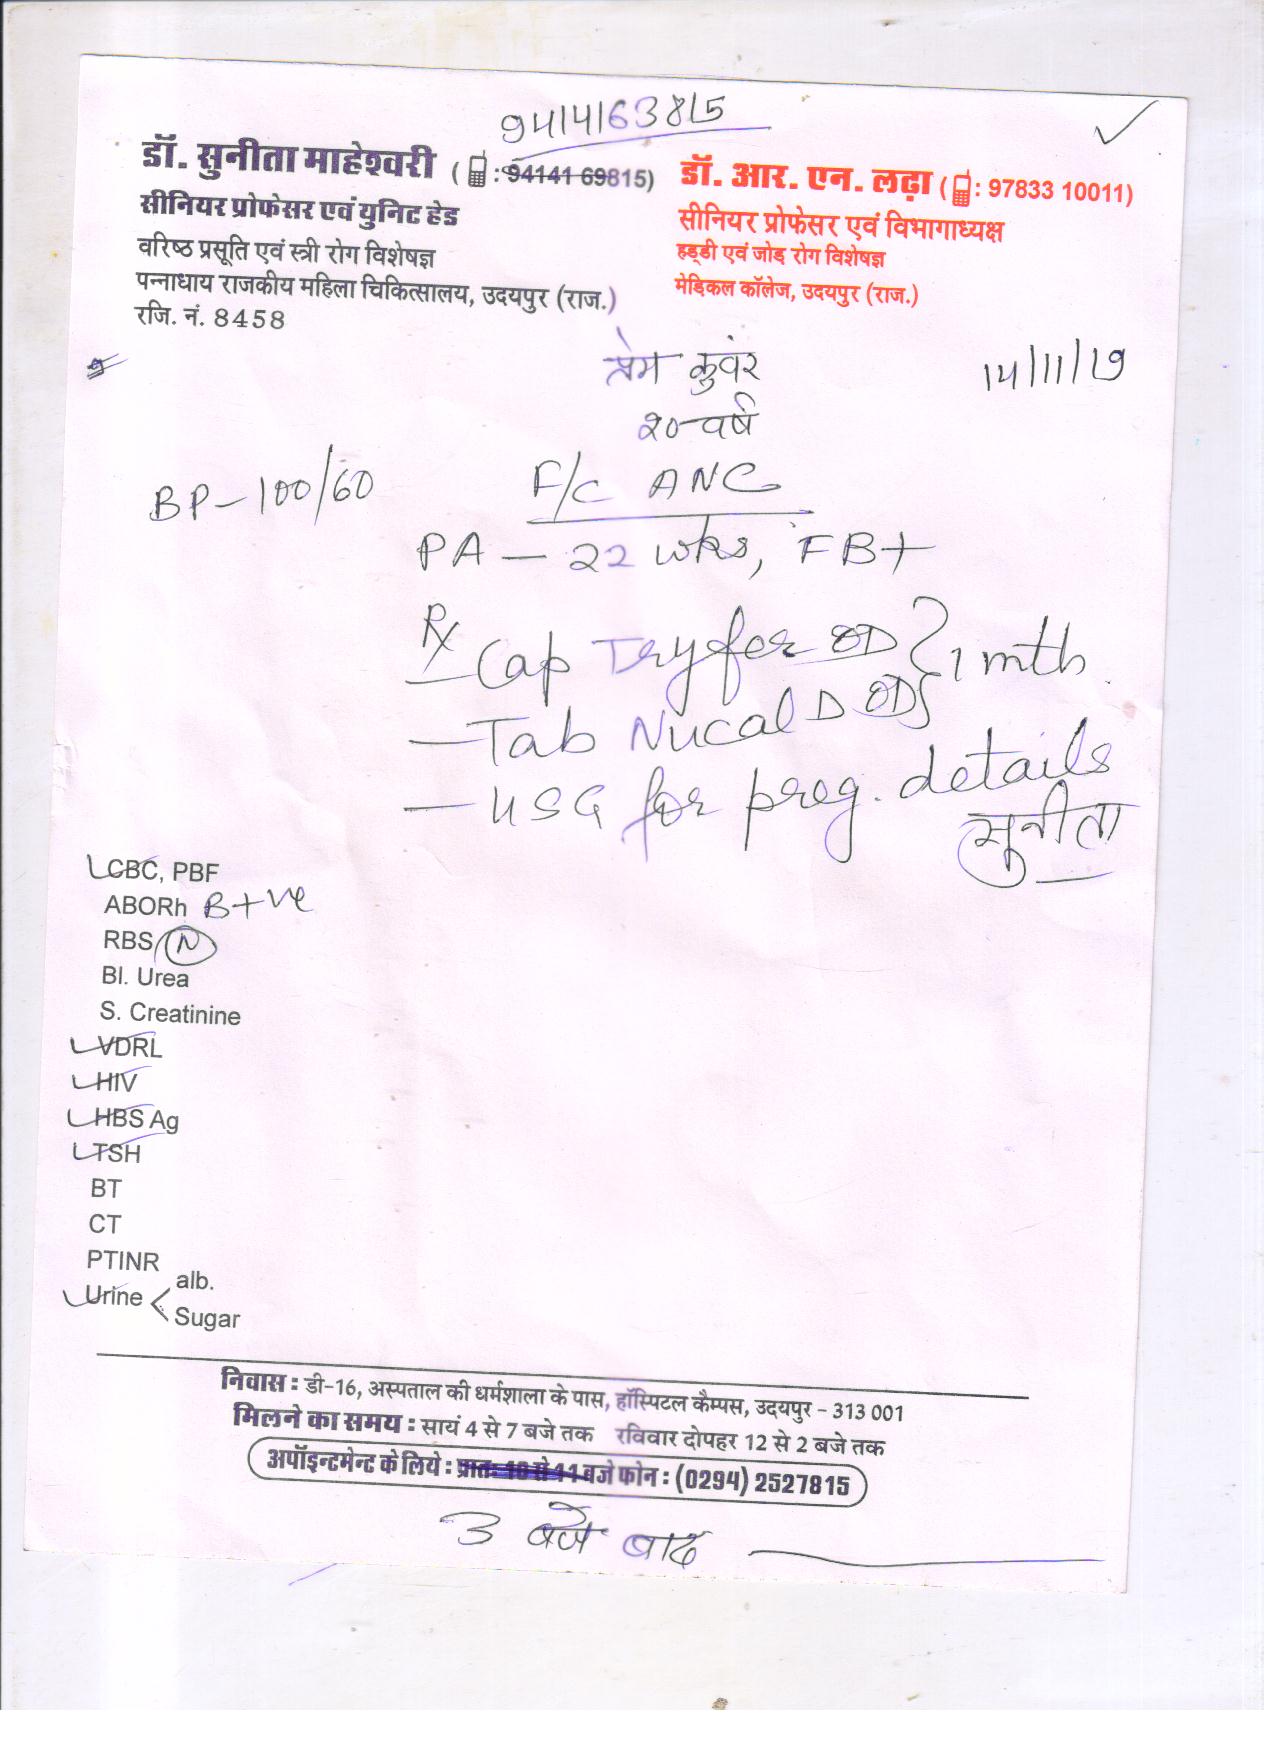 9414163815
डॉ. सुनीता माहेश्वरी ( : 94141 69815)
सीनियर प्रोफेसर एवं युनिट हेड
वरिष्ठ प्रसूति एवं स्त्री रोग विशेषज्ञ
पन्नाधाय राजकीय महिला चिकित्सालय, उदयपुर (राज.)
रजि. नं. 8458
डॉ. आर. एन. लढ़ा ( : 97833 10011)
सीनियर प्रोफेसर एवं विभागाध्यक्ष
हड्डी एवं जोड़ रोग विशेषज्ञ
मेडिकल कॉलेज, उदयपुर (राज.)
प्रेम कुवंर
14/11/19
२० वर्ष
BP - 100/60
F/C ANC
PA - 22 wks, FB+
Rx
Cap Tryfer OD } 1 mth.
- Tab Nucal D OD
- USG for preg. details
सुनीता
CBC, PBF
ABORh B+ve
RBS N
Bl. Urea
S. Creatinine
VDRL
HIV
HBS Ag
TSH
BT
CT
PTINR
Urine < alb.
Sugar
निवास : डी-16, अस्पताल की धर्मशाला के पास, हॉस्पिटल कैम्पस, उदयपुर - 313 001
मिलने का समय : सायं 4 से 7 बजे तक रविवार दोपहर 12 से 2 बजे तक
अपॉइन्टमेन्ट के लिये : प्रातः 10 से 11 बजे फोन : (0294) 2527815
3 बजे बाद